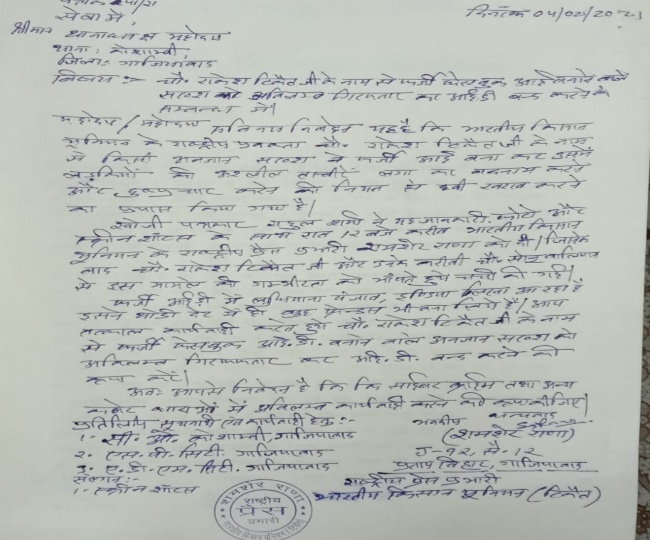 सेवा में,
दिनांक 04/02/2023
श्रीमान थानाध्यक्ष महोदय
थाना: कौशाम्बी,
जिला:- गाजियाबाद
विषय:- चौ. राकेश टिकैत जी के नाम से फर्जी फेसबुक आई बनाने वाले
सख्श को अविलम्ब गिरफ्तार कर आई डी बन्द करने के
सम्बन्ध में।
महोदय / महोदया
सविनय निवेदन यह है कि भारतीय किसान
यूनियन के राष्ट्रीय प्रवक्ता चौ. राकेश टिकैत जी के नाम
से किसी अनजान सख्श ने फर्जी आई बना कर उसमें
लड़कियों की अश्लील तस्वीरें लगा कर बदनाम करने
और दुष्प्रचार करने की नियत से छवी खराब करने
का प्रयास किया गया है।
खोजी पत्रकार राहुल शर्मा ने यह जानकारी, फोटो और
स्क्रीन शॉटस के साथ रात 12 बजे करीब भारतीय किसान
यूनियन के राष्ट्रीय प्रैस प्रभारी शमशेर राणा को दी। जिसके
बाद चौ. राकेश टिकैत जी और उनके करीबी और
से इस मामले की गम्भीरता को भाँपते हुये चर्चा की गई।
फर्जी आईडी में लुधियाना पंजाब, इण्डिया लिखा आ रहा है
उसने थोडी देर में ही कुछ फ्रेन्डस भी बना लिये हैं। आप
तत्काल कार्यवाही करते हुये चौ. राकेश टिकैत जी के नाम
से फर्जी फेसबुक आई. डी. बनाने वाले अनजान सख्श को
अविलम्ब गिरफ्तार कर आई. डी. बन्द करने की
कृपा करें।
अतः आपसे निवेदन है कि कि साईबर क्राईम तथा अन्य
कठोर धाराओं में अविलम्ब कार्यवाही करने की कृपा कीजिए।
प्रतिलिपि सूचनार्थ एवं कार्यवाही हेतु:-
धन्यवाद
भवदीय
1. सी. ओ. कौशाम्बी, गाजियाबाद
(शमशेर राणा)
2. एस. पी. सिटी. गाजियाबाद
J-92, सै. 12
3. ए. डी. एम. सिटी. गाजियाबाद
प्रताप विहार, गाजियाबाद
संलग्न:-
राष्ट्रीय प्रैस प्रभारी
1. स्क्रीन शॉटस
भारतीय किसान यूनियन (टिकैत)
शमशेर राणा
राष्ट्रीय
प्रेस
प्रभारी
भारतीय किसान यूनियन (टिकैत)